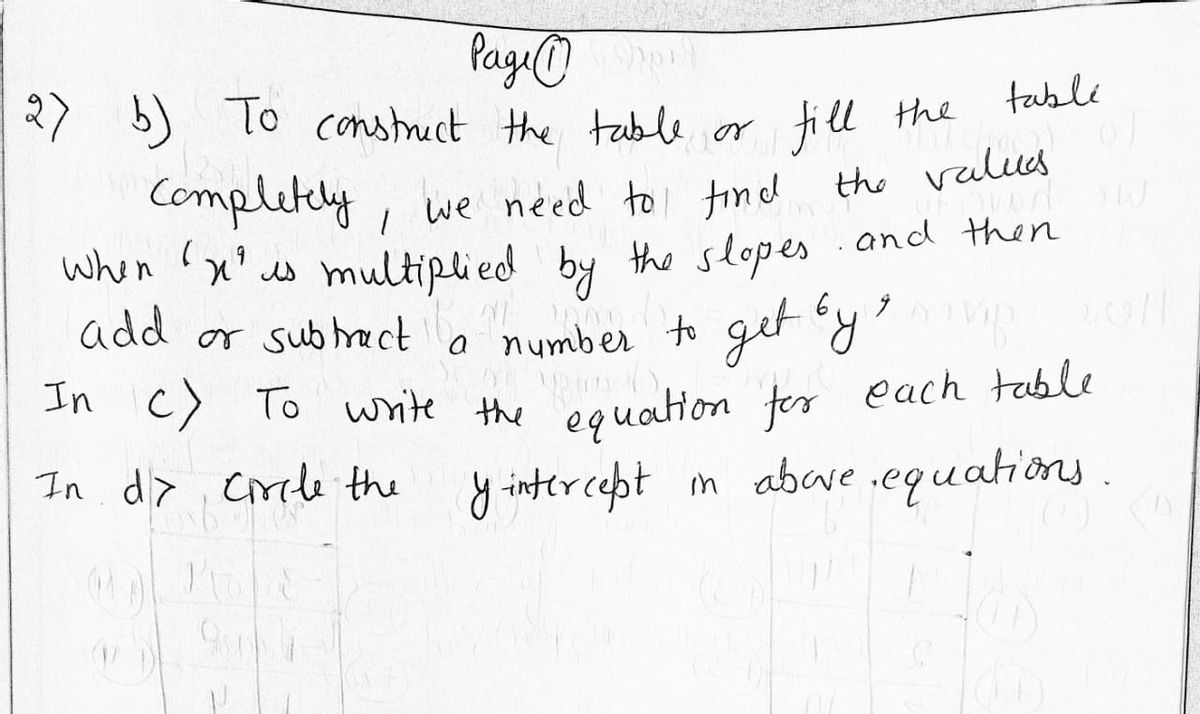 Page ①
2) b) To construct the table or fill the table
Completely, we need to find the values
when 'x' is multiplied by the slopes. and then
add or subtract a number to get 'y'
In c) To write the equation for each table
In d) Circle the y intercept in above equations.